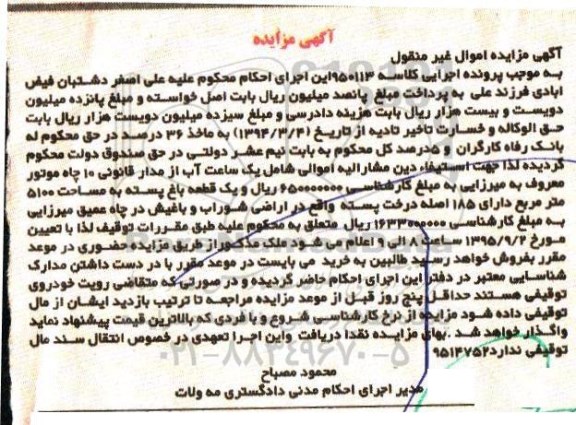 آگهی مزایده
آگهی مزایده اموال غیر منقول
به موجب پرونده اجرایی کلاسه ۹۵۰۱۱۳این اجرای احکام محکوم علیه علی اصغر دشتبان فیض
ابادی فرزند علی به پرداخت مبلغ پانصد میلیون ریال بابت اصل خواسته و مبلغ پانزده میلیون
دویست و بیست هزار ریال بابت هزینه دادرسی و مبلغ سیزده میلیون دویست هزار ریال بابت
حق الوکاله و خسارت تاخیر تادیه از تاریخ (۱۳۹۴/۳/۴) به ماخذ ۳۶ درصد در حق محکوم له
بانک رفاه کارگران و ده‌درصد کل محکوم به بابت نیم عشر دولتی در حق صندوق دولت محکوم
گردیده لذا جهت استیفاء دین مشارالیه اموالی شامل یک ساعت آب از مدار قانونی ۱۰ چاه موتور
معروف به میرزایی به مبلغ کارشناسی ۶۵۰۰۰۰۰۰۰ ریال و یک قطعه باغ پسته به مساحت ۵۱۰۰
متر مربع دارای ۱۸۵ اصله درخت پسته واقع در اراضی شوراب و باغیش در چاه عمیق میرزایی
به مبلغ کارشناسی ۱۶۳۳۰۰۰۰۰۰ریال متعلق به محکوم علیه طبق مقررات توقیف لذا با تعیین
مورخ ۱۳۹۵/۹/۲ ساعت ۸ الی ۹ اعلام می شود ملک مذکوراز طریق مزایده حضوری در موعد
مقرر بفروش خواهد رسید طالبین به خرید می بایست در موعد مقرر با در دست داشتن مدارک
شناسایی معتبر در دفتر این اجرای احکام حاضر گردیده و در صورتی که متقاضی رویت خودروی
توقیفی هستند حداقل پنج روز قبل از موعد مزایده مراجعه تا ترتیب بازدید ایشان از مال
توقیفی داده شود مزایده از نرخ کارشناسی شروع و با فردی که بالاترین قیمت پیشنهاد نماید
واگذار خواهد شد .بهای مزایده نقدا دریافت واین اجرا تعهدی در خصوص انتقال سند مال
توقیفی ندارد۹۵۱۴۷۵۲
محمود مصباح
مدیر اجرای احکام مدنی دادگستری مه ولات
۰۲۱-۸۸۳۴۹۶۷۰-۵